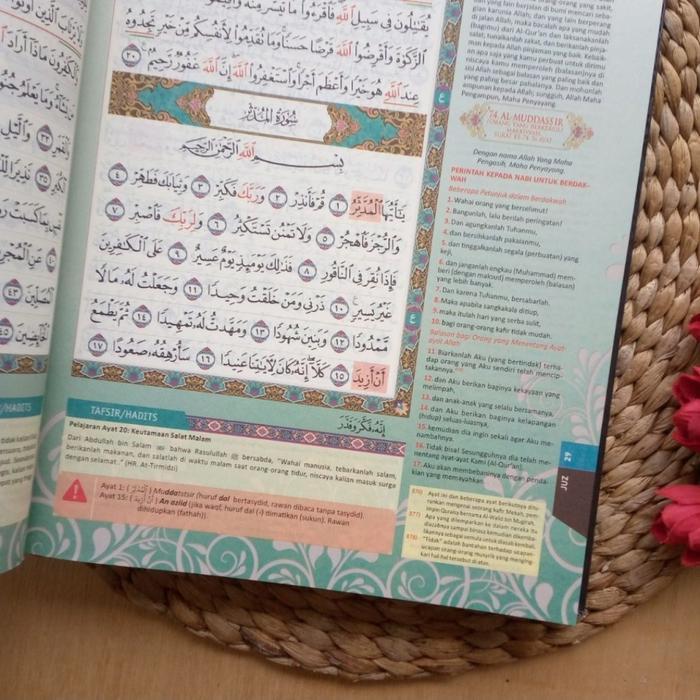 يُقَٰتِلُونَ فِي سَبِيلِ ٱللَّهِ فَٱقْرَءُوا۟ مَا تَيَسَّرَ مِنْهُ وَأَقِيمُوا۟
ٱلزَّكَوٰةَ وَأَقْرِضُوا۟ ٱللَّهَ قَرْضًا حَسَنًا وَمَا تُقَدِّمُوا۟ لِأَنفُسِكُم مِّنْ خَيْرٍ تَجِدُوهُ
عِندَ ٱللَّهِ هُوَ خَيْرًا وَأَعْظَمَ أَجْرًا وَٱسْتَغْفِرُوا۟ ٱللَّهَ إِنَّ ٱللَّهَ غَفُورٌ رَّحِيمٌ ٢٠
سُورَةُ الْمُدَّثِّرِ
بِسْمِ ٱللَّهِ ٱلرَّحْمَٰنِ ٱلرَّحِيمِ
يَٰٓأَيُّهَا ٱلْمُدَّثِّرُ ١ قُمْ فَأَنذِرْ ٢ وَرَبَّكَ فَكَبِّرْ ٣ وَثِيَابَكَ فَطَهِّرْ ٤
وَٱلرُّجْزَ فَٱهْجُرْ ٥ وَلَا تَمْنُن تَسْتَكْثِرُ ٦ وَلِرَبِّكَ فَٱصْبِرْ ٧
فَإِذَا نُقِرَ فِي ٱلنَّاقُورِ ٨ فَذَٰلِكَ يَوْمَئِذٍ يَوْمٌ عَسِيرٌ ٩ عَلَى ٱلْكَٰفِرِينَ
غَيْرُ يَسِيرٍ ١٠ ذَرْنِي وَمَنْ خَلَقْتُ وَحِيدًا ١١ وَجَعَلْتُ لَهُۥ مَالًا
مَّمْدُودًا ١٢ وَبَنِينَ شُهُودًا ١٣ وَمَهَّدتُّ لَهُۥ تَمْهِيدًا ١٤ ثُمَّ يَطْمَعُ
أَنْ أَزِيدَ ١٥ كَلَّآ إِنَّهُۥ كَانَ لِءَايَٰتِنَا عَنِيدًا ١٦ سَأُرْهِقُهُۥ صَعُودًا ١٧
إِنَّهُۥ فَكَّرَ وَقَدَّرَ
TAFSIR/HADITS
Pelajaran Ayat 20: Keutamaan Salat Malam
Dari Abdullah bin Salam bahwa Rasulullah ﷺ bersabda, "Wahai manusia, tebarkanlah salam,
berikanlah makanan, dan salatlah di waktu malam saat orang-orang tidur, niscaya kalian masuk surga
dengan selamat." (HR. At-Tirmidzi)
Ayat 1: (ٱلْمُدَّثِّرُ) Muddatstsir (huruf dal bertasydid, rawan dibaca tanpa tasydid).
Ayat 15: (أَنْ أَزِيدَ) An aziid (jika waqf, huruf dal (د) dimatikan (sukun). Rawan
dihidupkan (fathah)).
di jalan Allah, maka bacalah apa yang mudah
(bagimu) dari Al-Qur'an dan laksanakanlah
salat, tunaikanlah zakat, dan berikanlah pinja-
man kepada Allah pinjaman yang baik. Kebaik-
an apa saja yang kamu perbuat untuk dirimu
niscaya kamu memperoleh (balasan)nya di
sisi Allah sebagai balasan yang paling baik dan
yang paling besar pahalanya. Dan mohonlah
ampunan kepada Allah; sungguh, Allah Maha
Pengampun, Maha Penyayang.
74. AL-MUDDASSIR
(ORANG YANG BERKEMUL)
MAKKIYYAH
SURAT KE-74: 56 AYAT
Dengan nama Allah Yang Maha
Pengasih, Maha Penyayang.
PERINTAH KEPADA NABI UNTUK BERDAK-
WAH
Beberapa Petunjuk dalam Berdakwah
1. Wahai orang yang berselimut!
2. Bangunlah, lalu berilah peringatan!
3. Dan agungkanlah Tuhanmu,
4. dan bersihkanlah pakaianmu,
5. dan tinggalkanlah segala (perbuatan) yang
keji,
6. dan janganlah engkau (Muhammad) mem-
beri (dengan maksud) memperoleh (balasan)
yang lebih banyak.
7. Dan karena Tuhanmu, bersabarlah.
8. Maka apabila sangkakala ditiup,
9. maka itulah hari yang serba sulit,
10. bagi orang-orang kafir tidak mudah.
Balasan bagi Orang yang Menentang Ayat-
ayat Allah
11. Biarkanlah Aku (yang bertindak) terha-
dap orang yang Aku sendiri telah mencip-
takannya.
12. dan Aku berikan baginya kekayaan yang
melimpah,
13. dan anak-anak yang selalu bersamanya,
14. dan Aku berikan baginya kelapangan
(hidup) seluas-luasnya,
15. kemudian dia ingin sekali agar Aku me-
nambahnya.
16. Tidak bisa! Sesungguhnya dia telah me-
nentang ayat-ayat Kami (Al-Qur'an).
17. Aku akan membebaninya dengan penda-
kian yang memayahkan.
JUZ 29